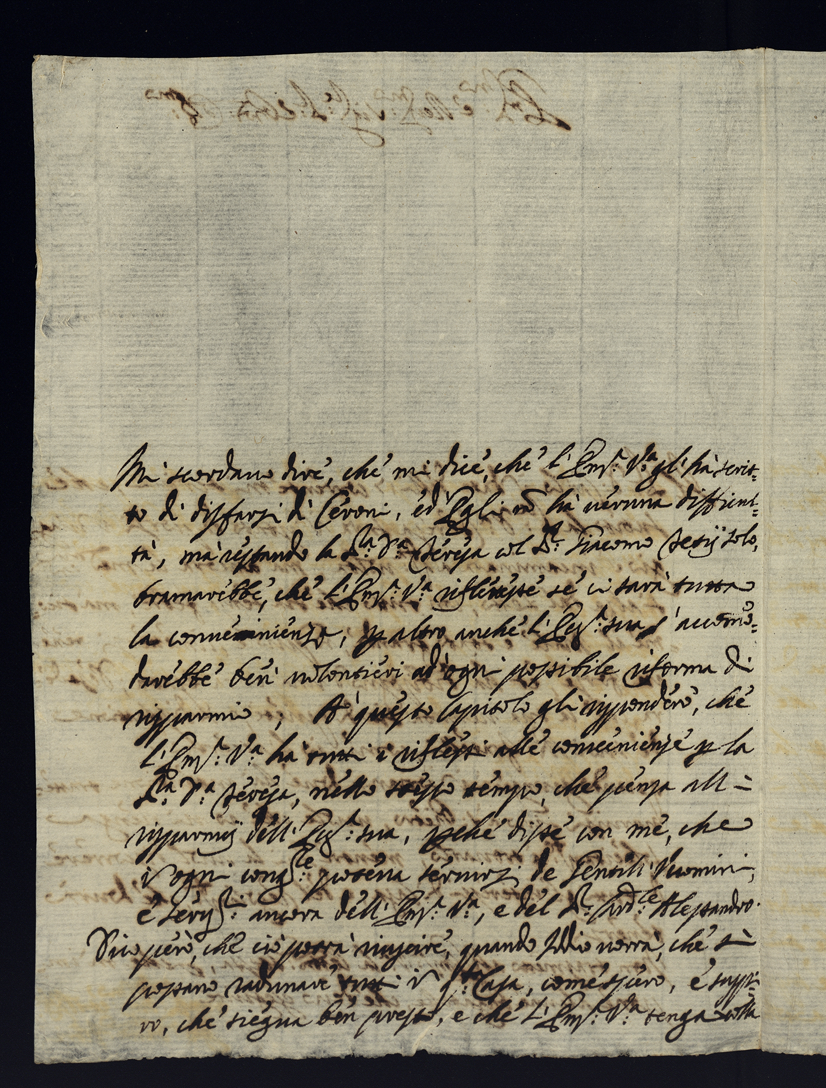 Mi scordavo dire, che mi dice, che l'Em.ª V.ª gli hà scrit=
to di disfarsi di Ceroni, ed Egli nõ hà veruna difficul=
tà, mà restando la S.ra D.ª Teresa col S.r Giacomo solo,
bramarebbe, che l'Em.ª V.ª riflettesse se ci sarà tutta
la convenienza; p altro anche l'Em.ª sua s'accomo=
darebbe ben volontieri ad ogni possibile riforma di
risparmio; A questo Capitolo gli risponderò, che
l'Em.ª V.ª hà tutti i riflessi alle convenienze p la
S.ra D.ª Teresa, nello stesso tempo, che pensa all=
risparmij dell'Em.ª sua, pche disse con me, che
in ogni cong.le poteva servirsi de Gentil'Huomini,
e Serv.ri ancora dell'Em.ª V.ª, e del S.r Card.le Alessandro.
Dico però, che ciò potrà riuscire, quando Iddio vorrà, che si
possano radunare tutti in q.ta Casa, come spero, e suppli=
co, che siegua ben presto, e che l'Em.ª V.ª tenga